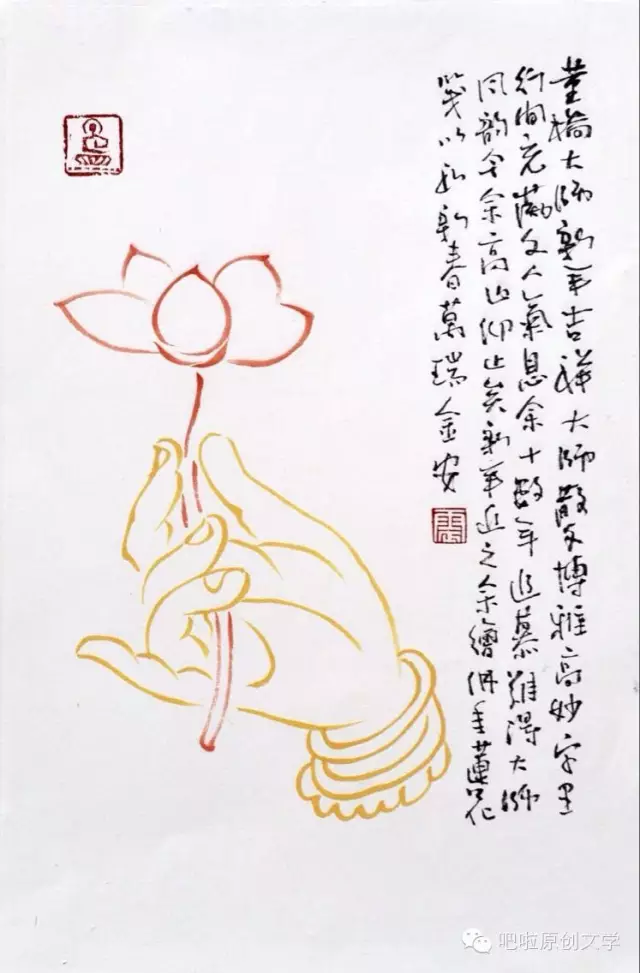 董橋大师新年吉祥大师散文博雅高妙字里
行间充满文人氣息余十数年追慕难得大师
风韵令余高山仰止矣新年近之余繪佛手蓮花
以祝新春萬瑞金安
吧啦原创文学